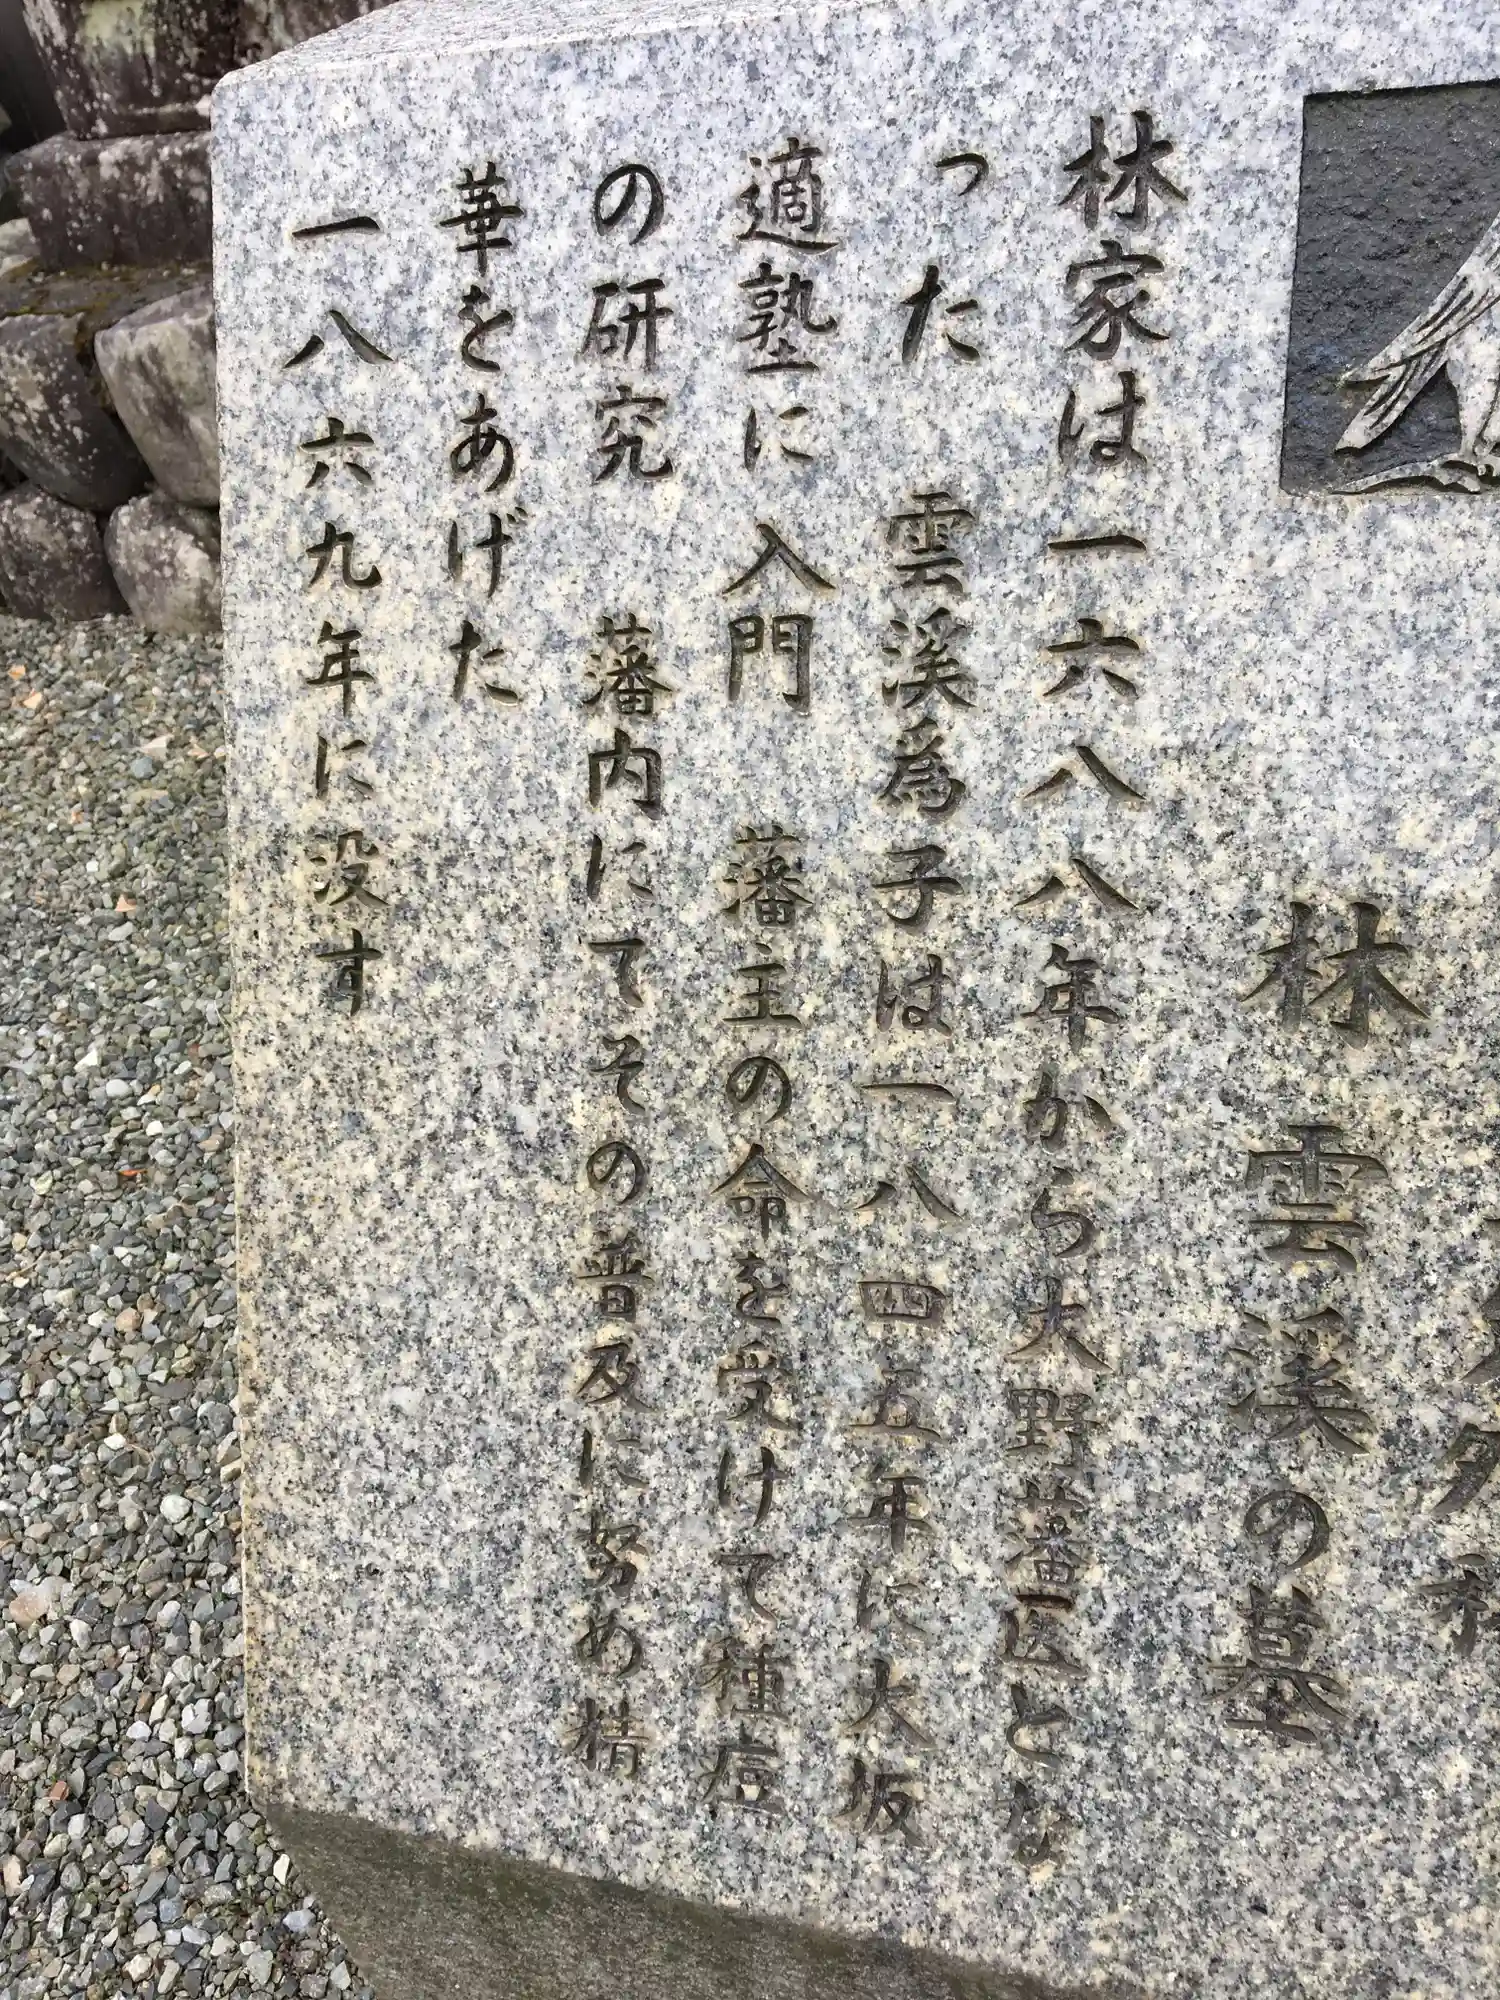 林雲溪の墓
林家は一六八八年から大野藩医とな
った 雲溪爲子は一八四五年に大坂
適塾に入門 藩主の命を受けて種痘
の研究 藩内にてその普及に努め精
華をあげた
一八六九年に没す